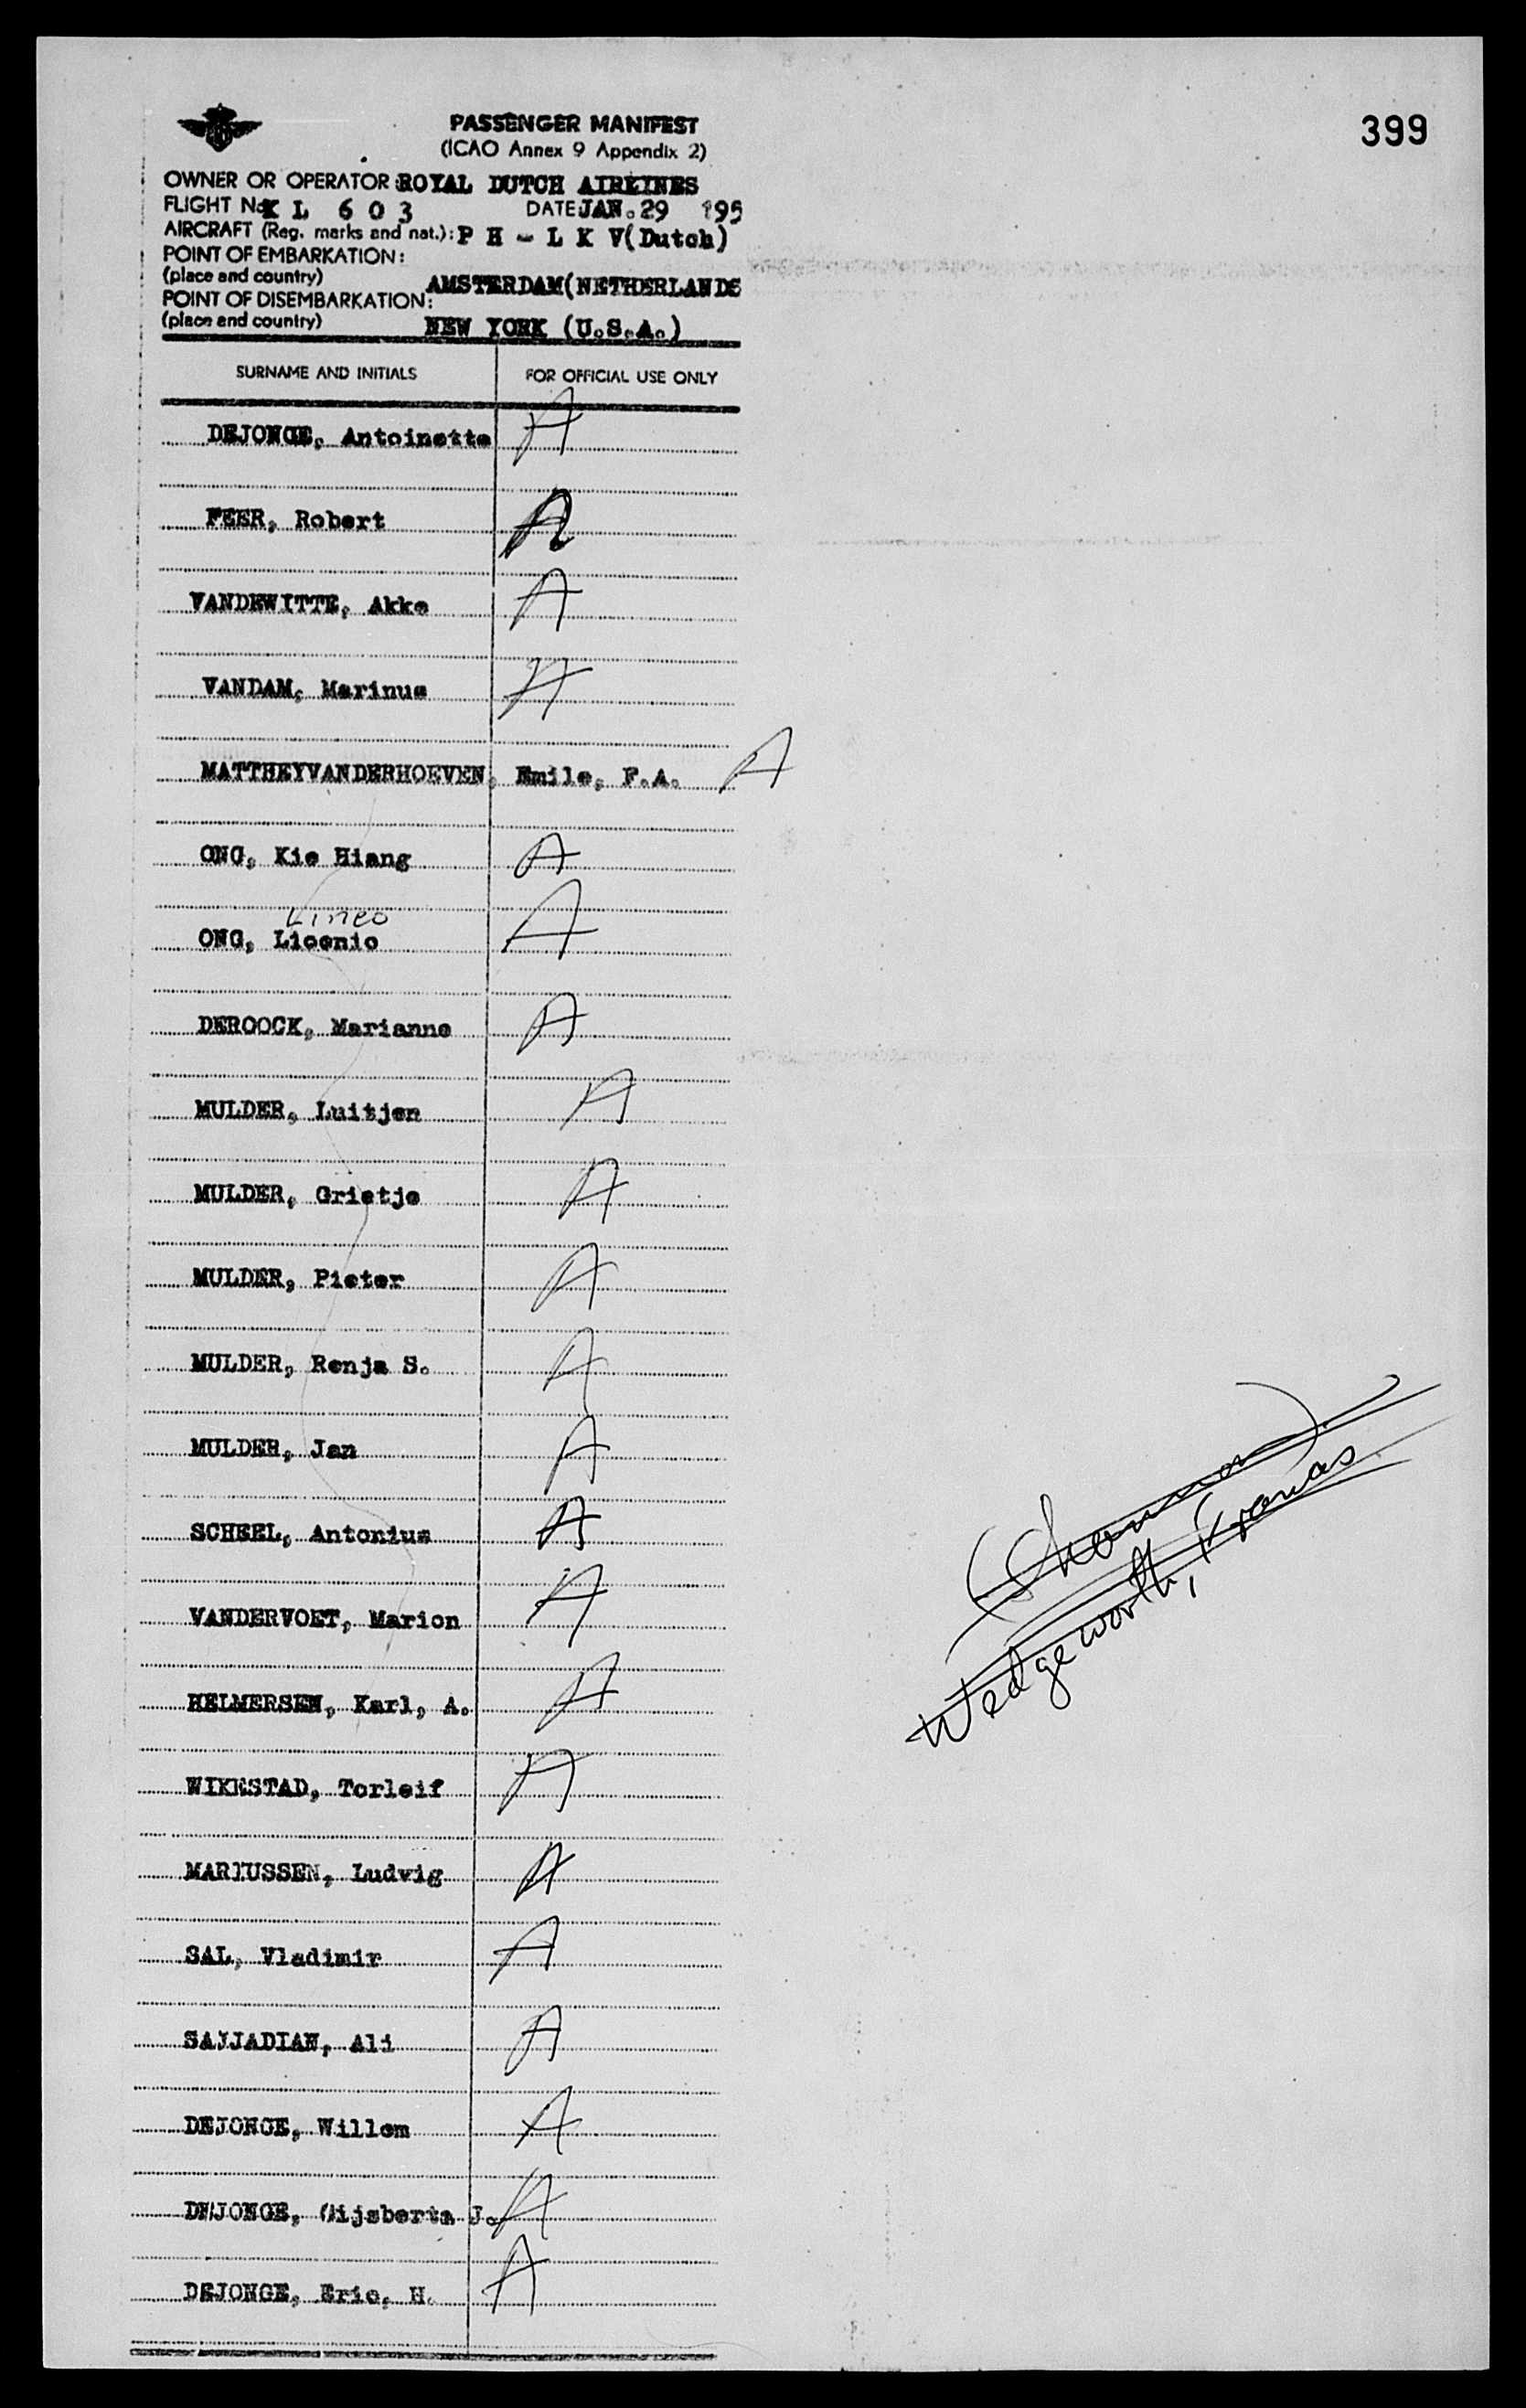 399
PASSENGER MANIFEST
(ICAO Annex 9 Appendix 2)
OWNER OR OPERATOR: ROYAL DUTCH AIRLINES
FLIGHT No: K L 6 0 3 DATE JAN. 29 195
AIRCRAFT (Reg. marks and nat.): P H - L K V (Dutch)
POINT OF EMBARKATION:
(place and country) AMSTERDAM (NETHERLANDS
POINT OF DISEMBARKATION:
(place and country) NEW YORK (U.S.A.)
SURNAME AND INITIALS FOR OFFICIAL USE ONLY
DEJONGE, Antoinette A
FEER, Robert A
VANDEWITTE, Akke A
VANDAM, Marinus A
MATTHEYVANDERHOEVEN, Emile, F.A. A
ONG, Kie Hiang A
Lineo
ONG, Licenio A
DEROOCK, Marianne A
MULDER, Luitjen A
MULDER, Grietje A
MULDER, Pieter A
MULDER, Renja S. A
MULDER, Jan A
SCHEEL, Antonius A
VANDERVOET, Marion A
HELMERSEN, Karl, A. A
WIKESTAD, Torleif A
MARIUSSEN, Ludvig A
SAL, Vladimir A
SAJJADIAN, Ali A
DEJONGE, Willem A
DEJONGE, Gijsberta J. A
DEJONGE, Eric, H. A
(Shannon)
Wedgeworth,